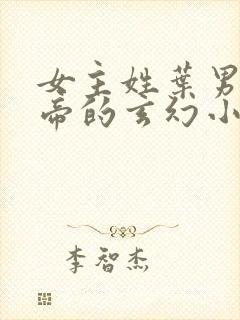 女主姓葉男
帝的玄幻小
李智杰